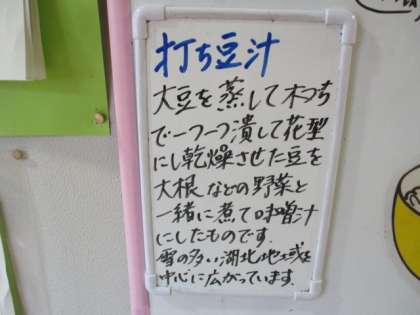 打ち豆汁
大豆を蒸して木づち
で一つ一つ潰して花型
にし乾燥させた豆を
大根などの野菜と
一緒に煮て味噌汁
にしたものです.
雪の多い湖北地域を
中心に広がっています.